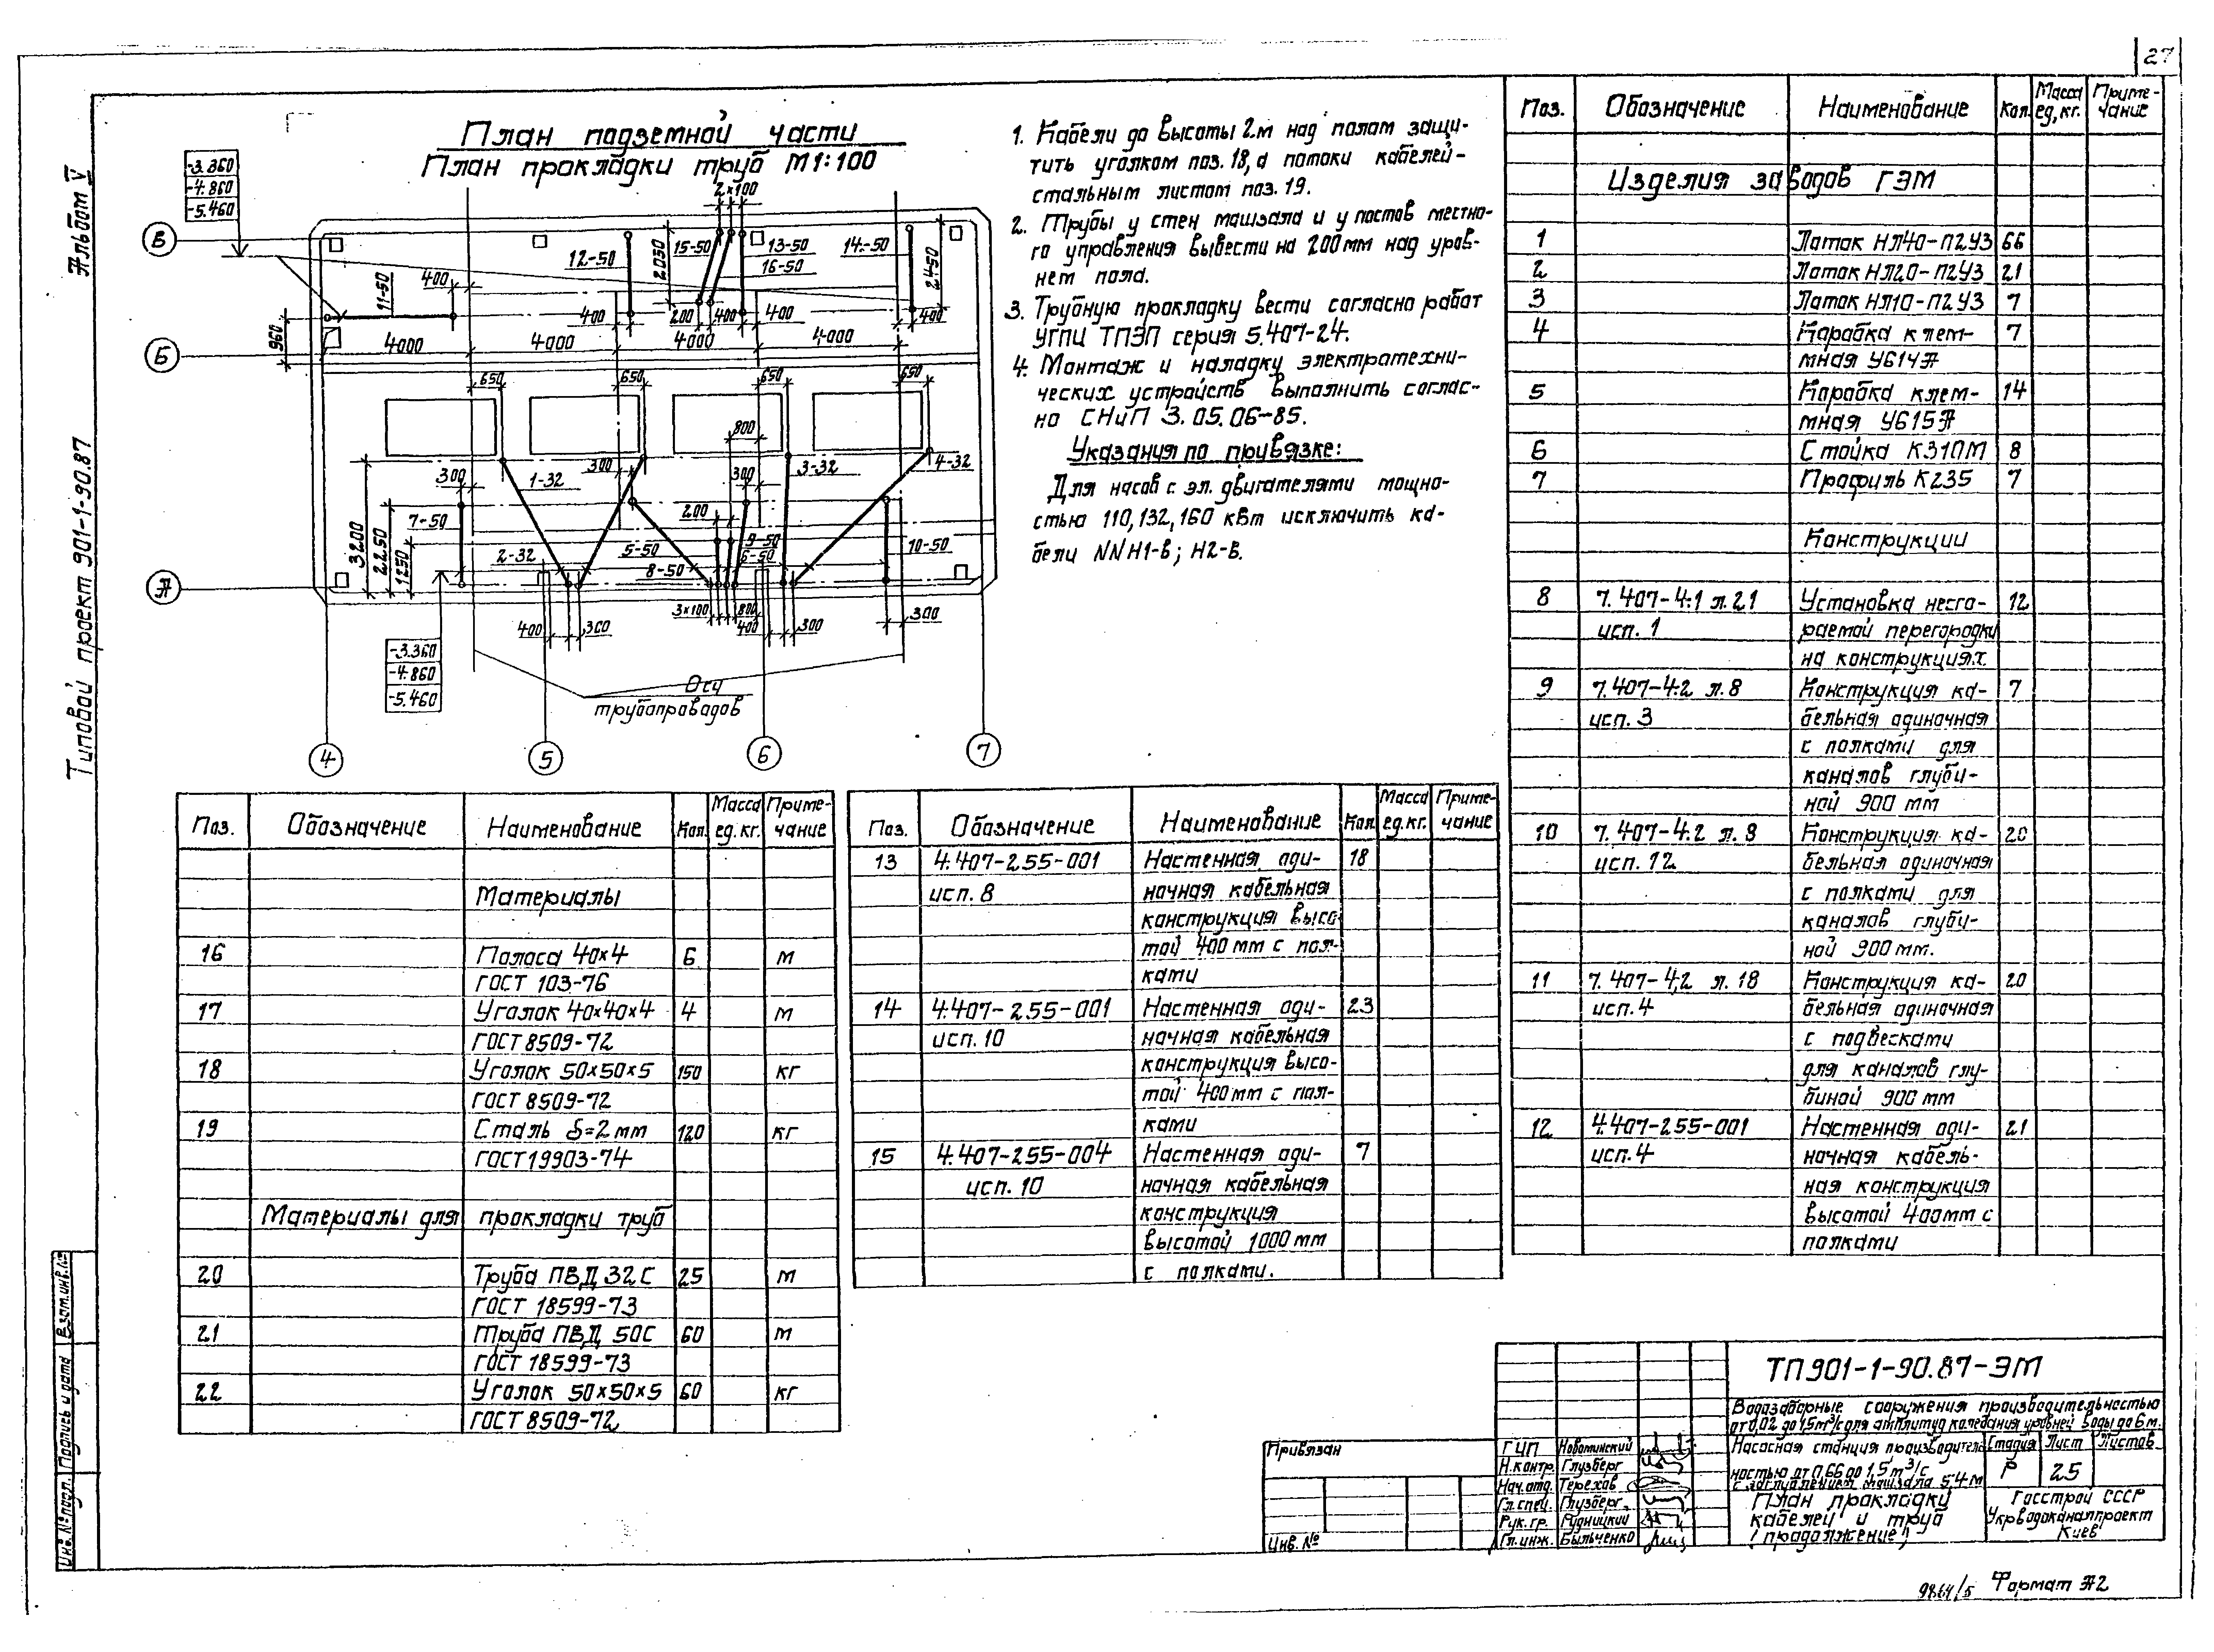 27
Альбом V
Типовой проект 901-1-90.87
План подземной части
План прокладки труб М1:100
-3.360
-4.860
-5.460
В
Б
А
2×100
12-50
2050
15-50
13-50
16-50
14-50
2450
11-50
400
400
200
400
400
400
960
4000
4000
4000
4000
650
650
650
650
800
300
1-32
300
300
3-32
4-32
3200
2250
1250
7-50
2-32
5-50
8-50
200
9-50
6-50
10-50
3×100
800
400
300
400
300
300
-3.360
-4.860
-5.460
Оси
трубопроводов
4
5
6
7
1. Кабели до высоты 2м над полом защи-
тить уголком поз. 18, а потоки кабелей -
стальным листом поз. 19.
2. Трубы у стен машзала и у постов местно-
го управления вывести на 200 мм над уров-
нем пола.
3. Трубную прокладку вести согласно работ
УГПИ ТПЭП серия 5.407-24.
4. Монтаж и наладку электротехни-
ческих устройств выполнить соглас-
но СНиП 3.05.06-85.
Указания по привязке:
Для насов с эл. двигателями мощно-
стью 110, 132, 160 кВт исключить ка-
бели NNН1-В; Н2-В.
Поз. Обозначение Наименование Кол. Масса ед, кг. Приме-чание
Изделия заводов ГЭМ
1 Лоток НЛ40-П2У3 66
2 Лоток НЛ20-П2У3 21
3 Лоток НЛ10-П2У3 7
4 Коробка клем- 7
мная У614А
5 Коробка клем- 14
мная У615А
6 Стойка К310М 8
7 Профиль К235 7
Конструкции
8 7.407-4.1 л.21 Установка несго- 12
исп. 1 раемой перегородки
на конструкциях
9 7.407-4.2 л. 8 Конструкция ка- 7
исп. 3 бельная одиночная
с полками для
каналов глуби-
ной 900 мм
10 7.407-4.2 л. 8 Конструкция ка- 20
исп. 12 бельная одиночная
с полками для
каналов глуби-
ной 900 мм.
11 7.407-4.2 л. 18 Конструкция ка- 20
исп. 4 бельная одиночная
с подвесками
для каналов глу-
биной 900 мм
12 4.407-255-001 Настенная оди- 21
исп. 4 ночная кабель-
ная конструкция
высотой 400мм с
полками
Поз. Обозначение Наименование Кол. Масса ед. кг. Приме-чание
13 4.407-255-001 Настенная оди- 18
исп. 8 ночная кабельная
конструкция высо
той 400 мм с пол-
ками
14 4.407-255-001 Настенная оди- 23
исп. 10 ночная кабельная
конструкция высо-
той 400 мм с пол-
ками
15 4.407-255-004 Настенная оди- 7
исп. 10 ночная кабельная
конструкция
высотой 1000 мм
с полками.
Поз. Обозначение Наименование Кол. Масса ед. кг. Приме-чание
Материалы
16 Полоса 40×4 6 м
ГОСТ 103-76
17 Уголок 40×40×4 4 м
ГОСТ 8509-72
18 Уголок 50×50×5 150 кг
ГОСТ 8509-72
19 Сталь δ=2 мм 120 кг
ГОСТ 19903-74
Материалы для прокладки труб
20 Труба ПВД 32С 25 м
ГОСТ 18599-73
21 Труба ПВД 50С 60 м
ГОСТ 18599-73
22 Уголок 50×50×5 60 кг
ГОСТ 8509-72
Инв. № подл. Подпись и дата Взам. инв. №
ТП901-1-90.87-ЭМ
Водозаборные сооружения производительностью
от 0,02 до 1,5м³/с для амплитуд колебания уровней воды до 6 м.
Насосная станция производитель
ностью от 0,66 до 1,5 м³/с
с заглублением машзала 5,4 м
Стадия Лист Листов
Р 25
План прокладки
кабелей и труб
(продолжение)
Госстрой СССР
Укрводоканалпроект
Киев
Привязан
Инв. №
ГИП Новоминский
Н.контр. Глузберг
Нач.отд. Терехов
Гл.спец. Глузберг
Рук.гр. Рудницкий
Гл.инж. Быльченко
9864/5 Формат А2